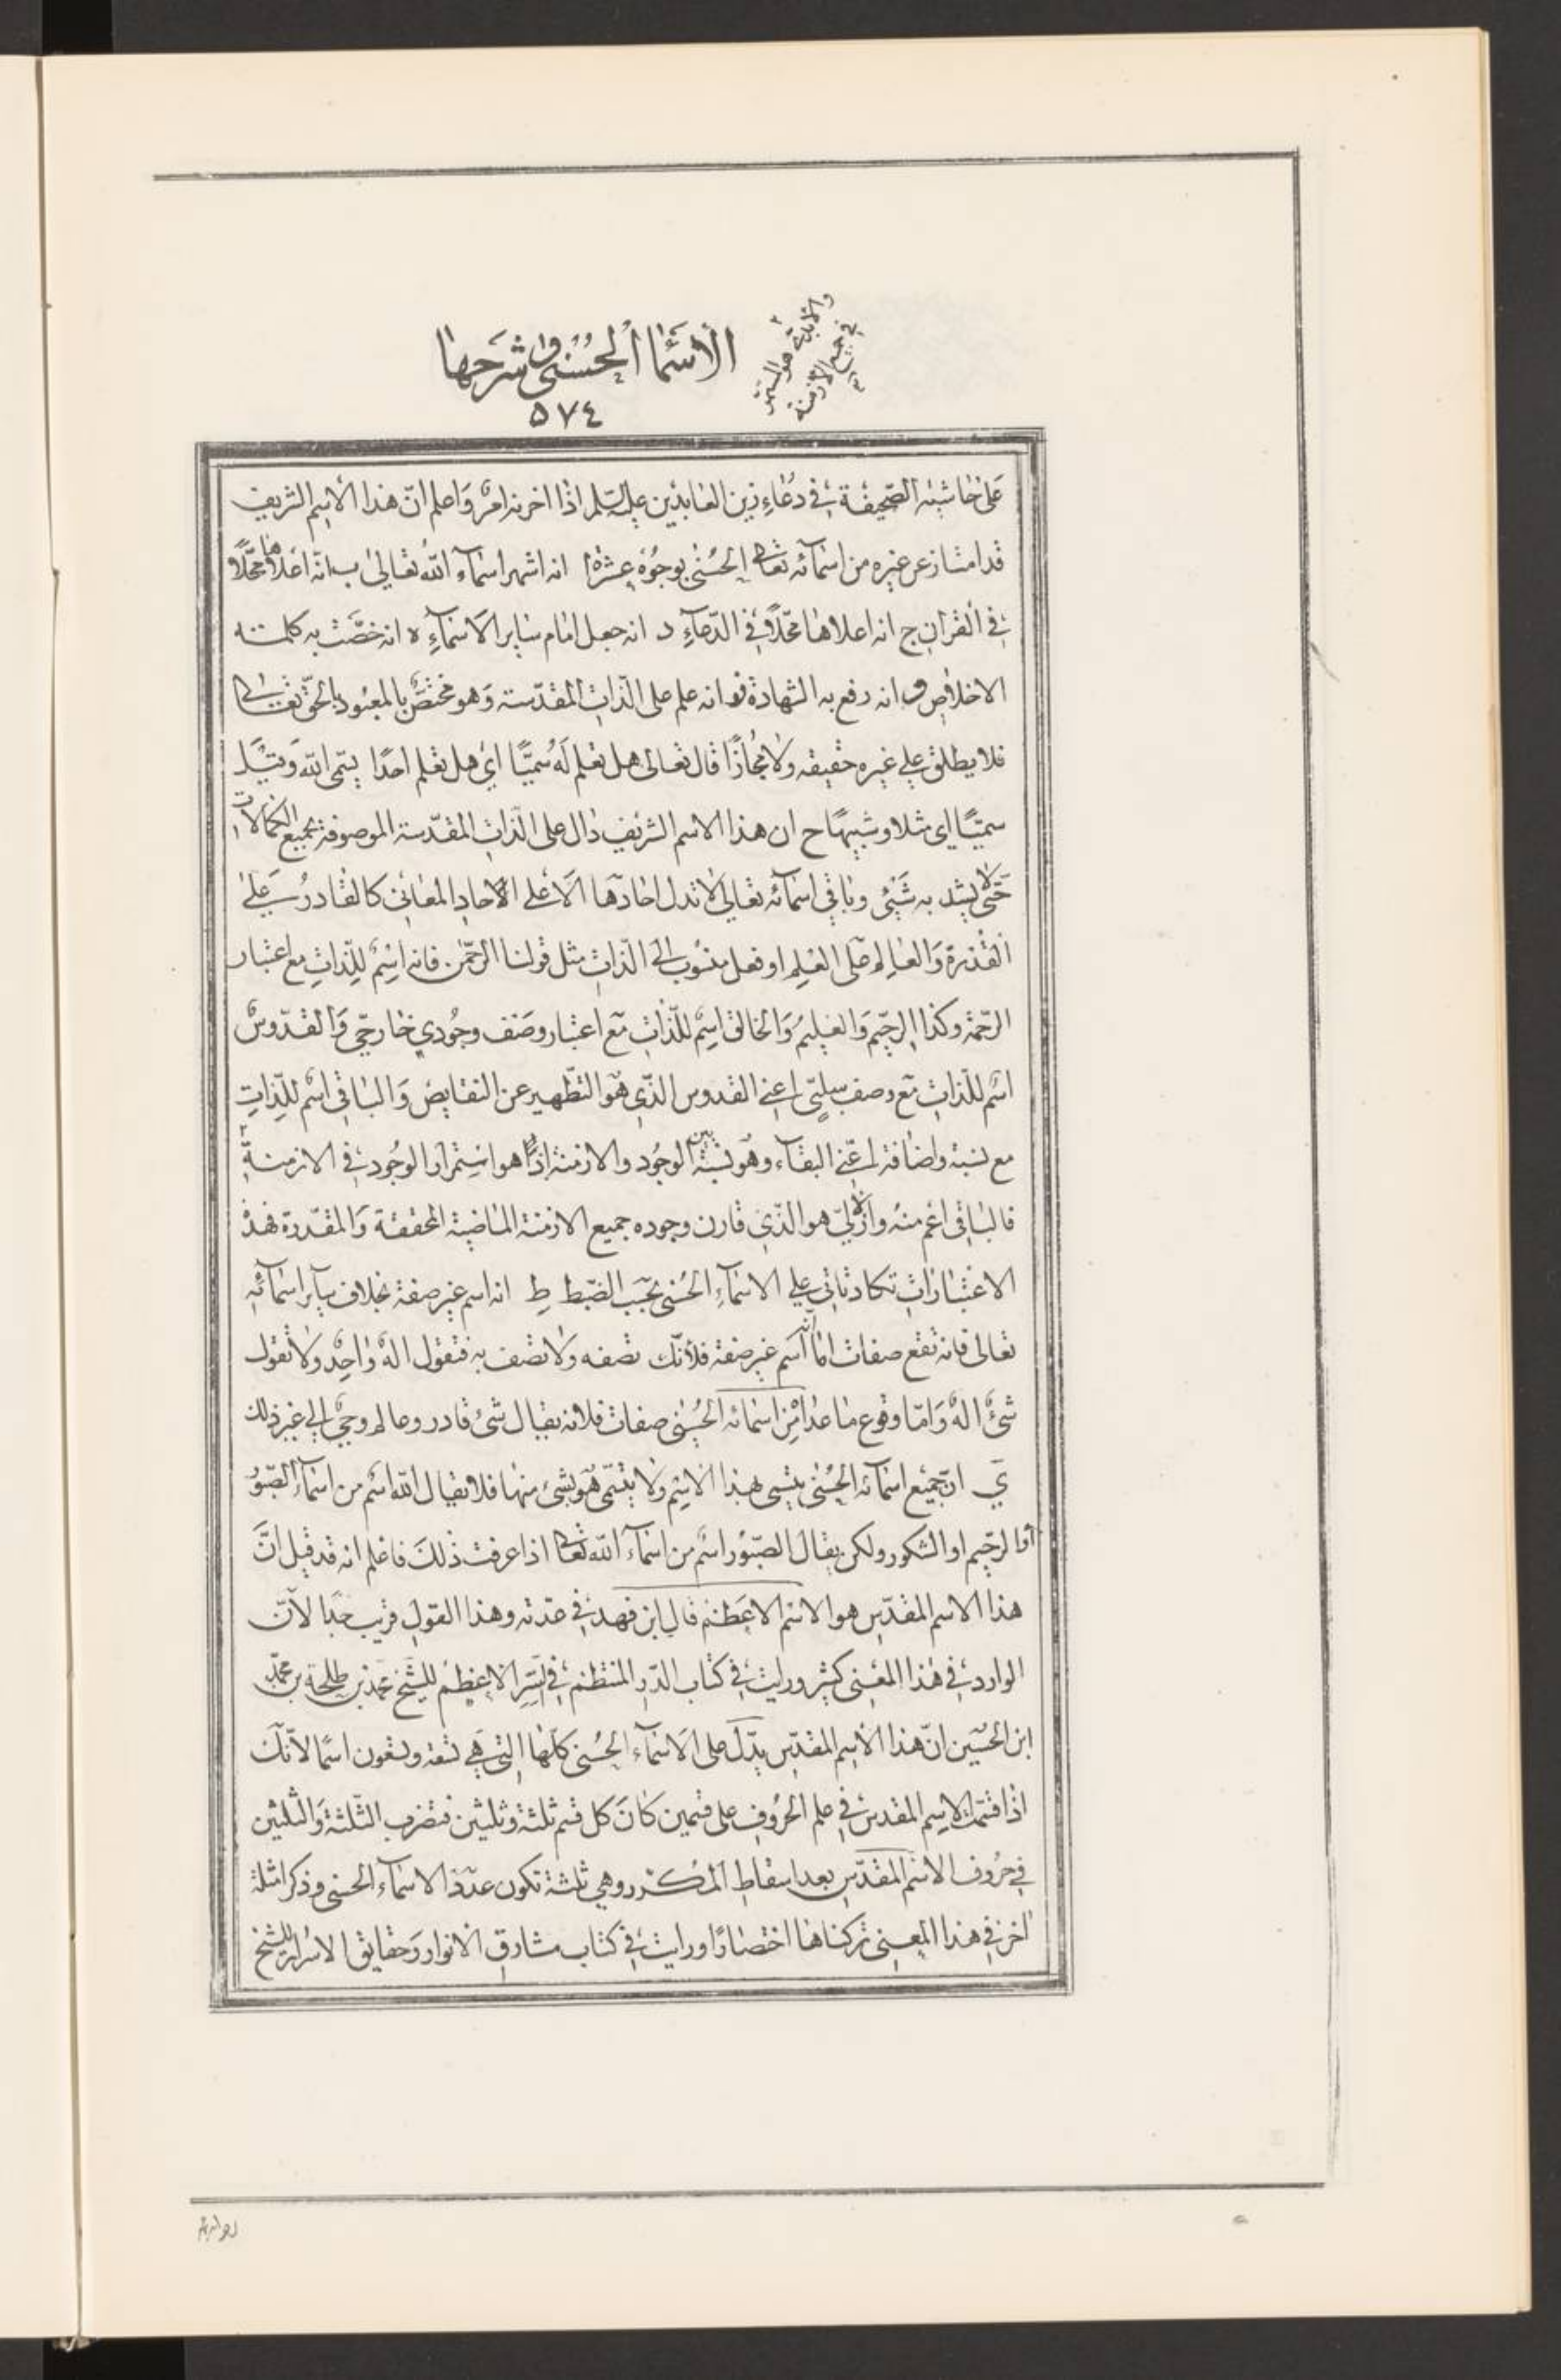 الأسماء الحسنى وشرحها
٥٧٤
والأبدي هو المستمر
في جميع الازمنة
على حاشية الصحيفة في دعاء زين العابدين عليه السلم اذا احزنه امر واعلم ان هذا الاسم الشريف
قد امتاز عن غيره من اسمآئه تعالى الحسنى بوجوه عشرة ا انه اشهر اسماء الله تعالى ب انه اعلاها محلا
في القران ج انه اعلاها محلا في الدعاء د انه جعل امام ساير الاسمآء ه انه خصت به كلمته
الاخلاص و انه رفع به الشهادة ز انه علم على الذات المقدسة وهو مختص بالمعبود بالحق تعالى
فلا يطلق على غيره حقيقه ولا مجازا قال تعالى هل تعلم له سميا اي هل تعلم احدا يسمى الله وقيل
سميا اي مثلا وشبيها ح ان هذا الاسم الشريف دال على الذات المقدسة الموصوفة بجميع الكمالات
حتى لا يشذ به شيئ وباقي اسمآئه تعالى لا تدل احادها الا على الاحاد المعاني كالقادر على
القدرة والعالم على العلم او فعل منسوب الى الذات مثل قولنا الرحمن فانه اسم للذات مع اعتبار
الرحمة وكذا الرحيم والعليم والخالق اسم للذات مع اعتبار وصف وجودي خارجي والقدوس
اسم للذات مع وصف سلبي اعني القدوس الذي هو التطهير عن النقايص والباقي اسم للذات
مع نسبة واضافة اعني البقآء وهو نسبة بين الوجود والازمنة اذا هو استمرار الوجود في الازمنة
فالباقي اعم منه والازلي هو الذي قارن وجوده جميع الازمنة الماضية المحققة والمقدرة فهذه
الاعتبارات تكاد تاتي على الاسمآء الحسنى بحسب الضبط ط انه اسم غير صفة بخلاف سآير اسمآئه
تعالى فانه تقع صفات اما انه اسم غير صفة فلأنك تصفه ولا تصف به فتقول اله واحد ولا تقول
شيء اله واما وقوع ما عدا من اسمائه الحسنى صفات فلانه يقال شئ قادر وعالم وحي الى غير ذلك
ي ان جميع اسمآئه الحسنى يتسمى بهذا الاسم ولا يتسمى هو بشئ منها فلا يقال الله اسم من اسمآء الصبور
او الرحيم او الشكور ولكن يقال الصبور اسم من اسمآء الله تعالى اذا عرفت ذلك فاعلم انه قد قيل ان
هذا الاسم المقدس هو الاسم الاعظم قال ابن فهد في عدته وهذا القول قريب جدا لان
الوارد في هذا المعنى كثير ورايت في كتاب الدر المنتظم في السر الاعظم للشيخ محمد بن طلحة بن محمد
ابن الحسين ان هذا الاسم المقدس يدل على الاسمآء الحسنى كلها التي هي تسعة وتسعون اسما لانك
اذا قسمت الاسم المقدس في علم الحروف على قسمين كان كل قسم ثلثة وثلثين فتضرب الثلثة والثلثين
في حروف الاسم المقدس بعد اسقاط المكرر وهي ثلثة تكون عدد الاسمآء الحسنى وذكر امثلة
اخر في هذا المعنى تركناها اختصارا ورايت في كتاب مشارق الانوار وحقايق الاسرار للشيخ